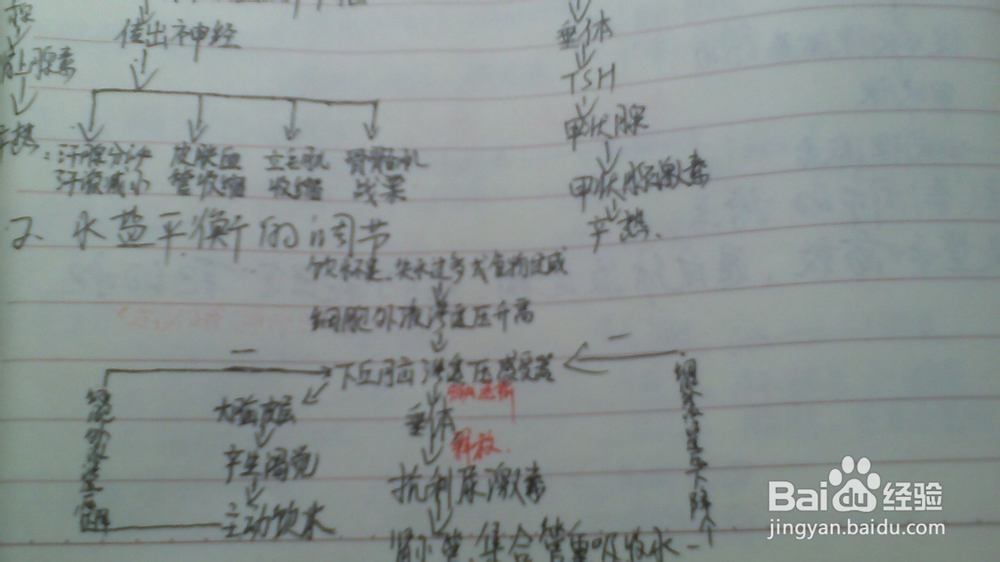 传出神经
垂体
TSH
甲状腺
甲状腺激素
产热.
汗腺分泌
汗液减少
皮肤血
管收缩
立毛肌
收缩
骨骼肌
战栗
2. 水盐平衡的调节
饮水不足、失水过多或食物过咸
细胞外液渗透压升高
下丘脑渗透压感受器
大脑皮层
产生渴觉
主动饮水
垂体
释放
抗利尿激素
肾小管、集合管重吸收水
Baidu经验
jingyan.baidu.com